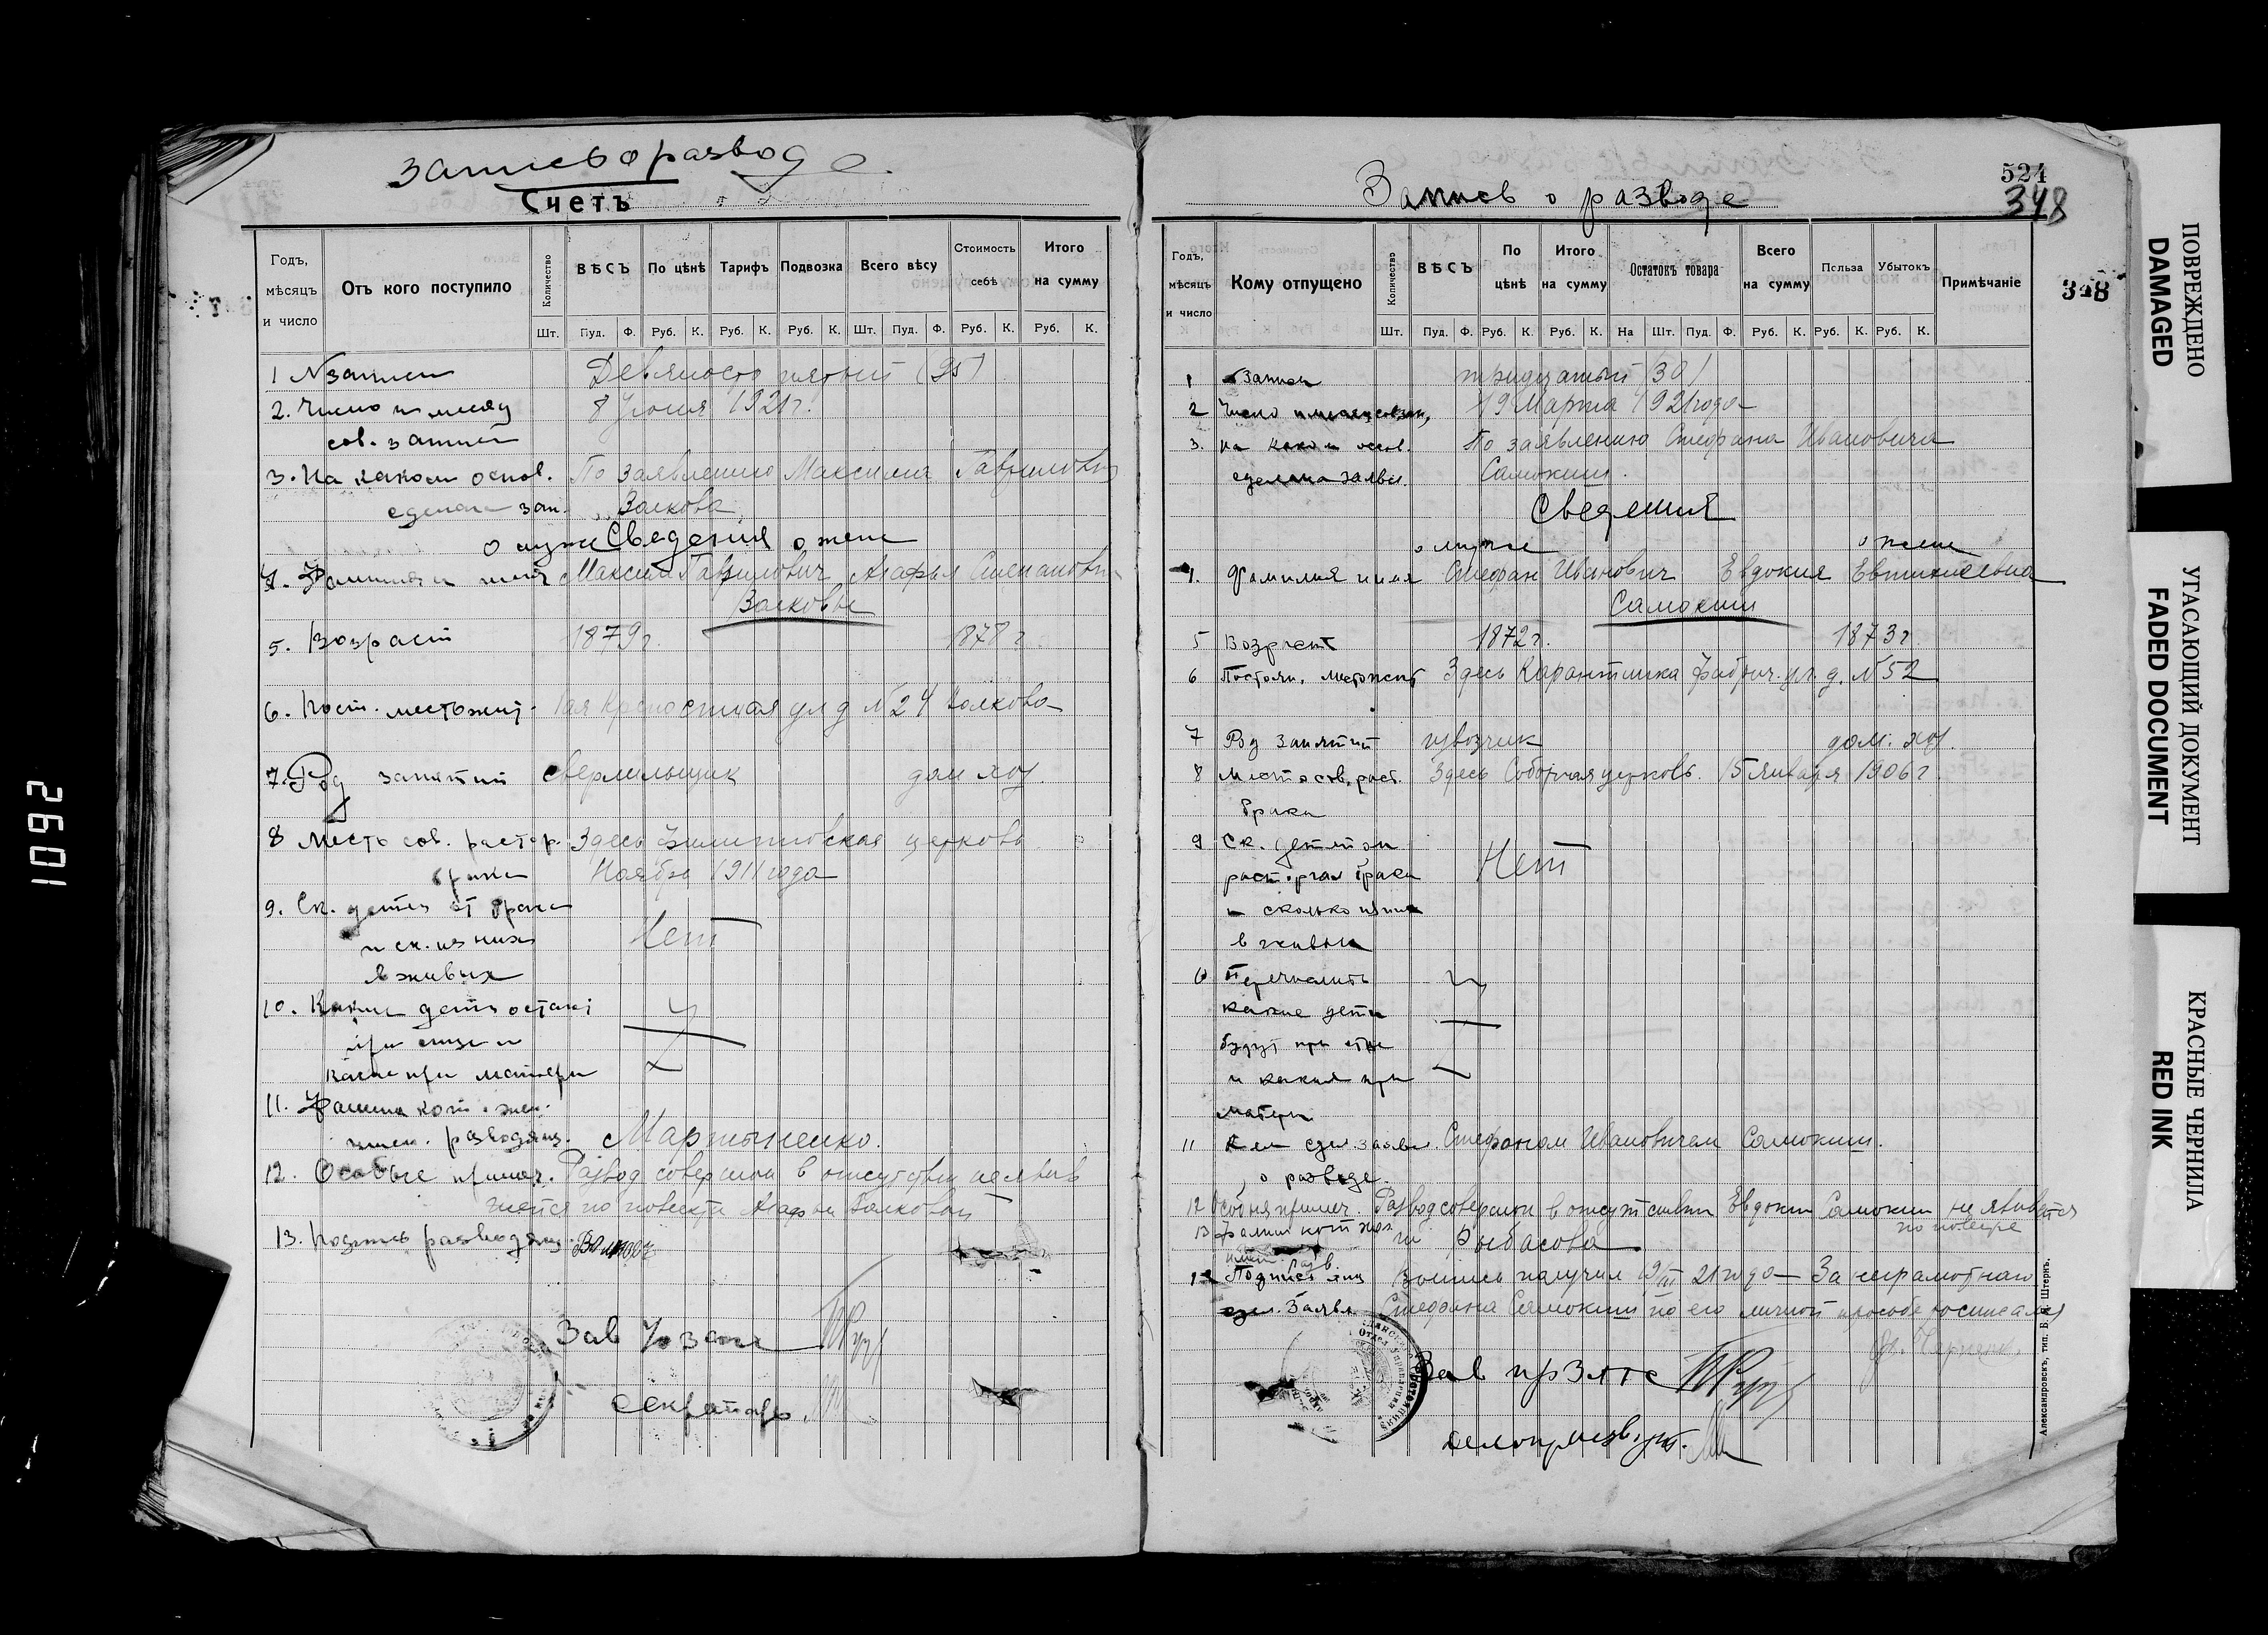 Запись о разводе
Счетъ
Годъ, мѣсяцъ и число
Отъ кого поступило
Количество
ВѢСЪ
По цѣнѣ
Тарифъ
Подвозка
Всего вѣсу
Стоимость себѣ
Итого на сумму
Шт. Пуд. Ф. Руб. К. Руб. К. Руб. К. Шт. Пуд. Ф. Руб. К. Руб. К.
1 № записи Девяносто пятый (95)
2. Число и месяц 8 Июня 1921 г.
сов. записи
3. На каком основ. По заявлению Максима Гавриловича
сделана зап. Волкова
о муже Сведения о жене
4. Фамилия и имя Максим Гаврилович Агафья Степановна
Волковы
5. Возраст 1879 г. 1878 г.
6. Пост. местожит. 1ая Крепостная ул д № 24 Волкова
7. Род занятий Сверлильщик дом хоз.
8 Место сов. растор. Здесь церковь
брака Ноябрь 1911 года
9. Ск. детей от брака
и ск. из них Нет
в живых
10. Какие дети остают
при отце и
какие при матери
11. Фамилия кот. жел.
имен. разводящ. Мартыненко.
12. Особые примеч. Развод совершон в отсутствии не явив
шейся по повестки Агафьи Волковой
13. Подпись разводящ. Волков
Зав
Секретарь
Запись о разводе
524
348
Годъ, мѣсяцъ и число
Кому отпущено
Количество
ВѢСЪ
По цѣнѣ
Итого на сумму
Остатокъ товара
Всего на сумму
Польза
Убытокъ
Примѣчаніе
348
Шт. Пуд. Ф. Руб. К. Руб. К. На Шт. Пуд. Ф. Руб. К. Руб. К. Руб. К.
1 № записи тридцатый (30)
2 Число и месяц совер. 19 Марта 1921 года
3. На каком осн. По заявлению Стефана Ивановича
сделана заявл. Самокиш.
Сведения
о муже о жене
4. Фамилия и имя Стефан Иванович Евдокия Евтихиевна
Самокиш
5 Возраст 1872 г. 1873 г.
6 Постоян. местожит Здесь Карантинка Фабрич. ул. д. № 52
7 Род занятий извозчик дом. хоз.
8 Место сов. раст. Здесь Соборная церковь. 15 января 1906 г.
брака
9 Ск. детей от
расторгал брака Нет
и сколько из них
в живых
10 Перечислить
какие дети
будут при отце
и какия при
матери
11 Кем сдел. заявл. Стефаном Ивановичем Самокиш.
о разводе.
12 Особыя примеч. Развод совершон в отсутствии Евдокии Самокиш не явившейся
по повестке
13 Фамил кот жел.
имен разв. Рыбасова
14 Подпись лиц Выпись получил 19/III 21 года — За неграмотнаго
сдел. Заявл Стефана Самокиш по его личной просьбе росписался
Зав п/о Загс
Делопроизводит.
Александровскъ, тип. Б. Штернъ.
ПОВРЕЖДЕНО
DAMAGED
УГАСАЮЩИЙ ДОКУМЕНТ
FADED DOCUMENT
КРАСНЫЕ ЧЕРНИЛА
RED INK
1092